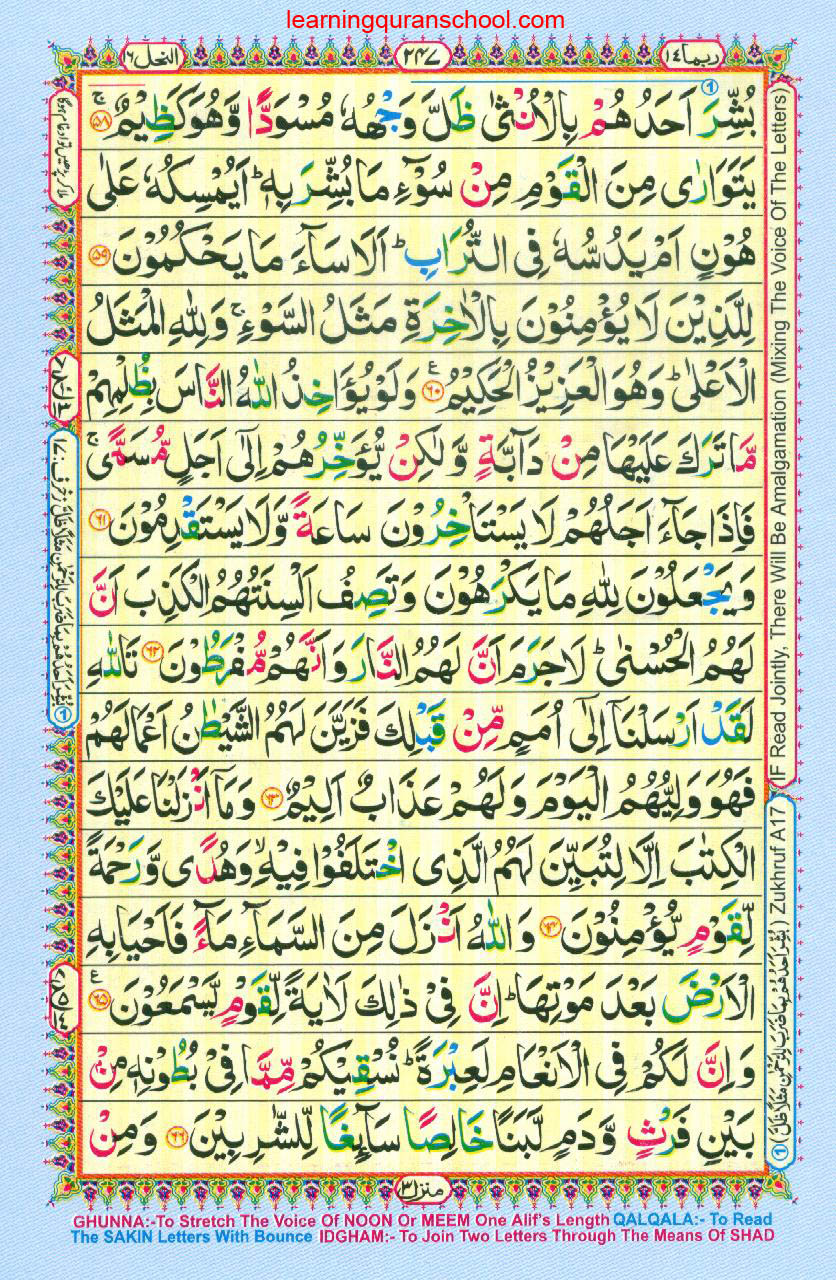 learningquranschool.com
ربما ١٤
٢٤٧
النحل ١٦
بُشِّرَ اَحَدُهُمْ بِالْاُنْثٰى ظَلَّ وَجْهُهٗ مُسْوَدًّا وَّهُوَ كَظِيْمٌ ۚ ٥٨
يَتَوَارٰى مِنَ الْقَوْمِ مِنْ سُوْٓءِ مَا بُشِّرَ بِهٖ ؕ اَيُمْسِكُهٗ عَلٰى
هُوْنٍ اَمْ يَدُسُّهٗ فِى التُّرَابِ ؕ اَلَا سَآءَ مَا يَحْكُمُوْنَ ٥٩
لِلَّذِيْنَ لَا يُؤْمِنُوْنَ بِالْاٰخِرَةِ مَثَلُ السَّوْءِ ۚ وَلِلّٰهِ الْمَثَلُ
الْاَعْلٰى ؕ وَهُوَ الْعَزِيْزُ الْحَكِيْمُ ٦٠ وَلَوْ يُؤَاخِذُ اللّٰهُ النَّاسَ بِظُلْمِهِمْ
مَّا تَرَكَ عَلَيْهَا مِنْ دَآبَّةٍ وَّلٰكِنْ يُّؤَخِّرُهُمْ اِلٰٓى اَجَلٍ مُّسَمًّى ۚ
فَاِذَا جَآءَ اَجَلُهُمْ لَا يَسْتَاْخِرُوْنَ سَاعَةً وَّلَا يَسْتَقْدِمُوْنَ ٦١
وَيَجْعَلُوْنَ لِلّٰهِ مَا يَكْرَهُوْنَ وَتَصِفُ اَلْسِنَتُهُمُ الْكَذِبَ اَنَّ
لَهُمُ الْحُسْنٰى ؕ لَا جَرَمَ اَنَّ لَهُمُ النَّارَ وَاَنَّهُمْ مُّفْرَطُوْنَ ٦٢ تَاللّٰهِ
لَقَدْ اَرْسَلْنَاۤ اِلٰٓى اُمَمٍ مِّنْ قَبْلِكَ فَزَيَّنَ لَهُمُ الشَّيْطٰنُ اَعْمَالَهُمْ
فَهُوَ وَلِيُّهُمُ الْيَوْمَ وَلَهُمْ عَذَابٌ اَلِيْمٌ ٦٣ وَمَاۤ اَنْزَلْنَا عَلَيْكَ
الْكِتٰبَ اِلَّا لِتُبَيِّنَ لَهُمُ الَّذِى اخْتَلَفُوْا فِيْهِ ۙ وَهُدًى وَّرَحْمَةً
لِّقَوْمٍ يُّؤْمِنُوْنَ ٦٤ وَاللّٰهُ اَنْزَلَ مِنَ السَّمَآءِ مَآءً فَاَحْيَا بِهِ
الْاَرْضَ بَعْدَ مَوْتِهَا ؕ اِنَّ فِىْ ذٰلِكَ لَاٰيَةً لِّقَوْمٍ يَّسْمَعُوْنَ ٦٥
وَاِنَّ لَكُمْ فِى الْاَنْعَامِ لَعِبْرَةً ؕ نُسْقِيْكُمْ مِّمَّا فِىْ بُطُوْنِهٖ مِنْۢ
بَيْنِ فَرْثٍ وَّدَمٍ لَّبَنًا خَالِصًا سَآئِغًا لِّلشّٰرِبِيْنَ ٦٦ وَمِنْ
(IF Read Jointly, There Will Be Amalgamation (Mixing The Voice Of The Letters)
Zukhruf A17
منزل ٣
GHUNNA:-To Stretch The Voice Of NOON Or MEEM One Alif's Length QALQALA:- To Read
The SAKIN Letters With Bounce IDGHAM:- To Join Two Letters Through The Means Of SHAD